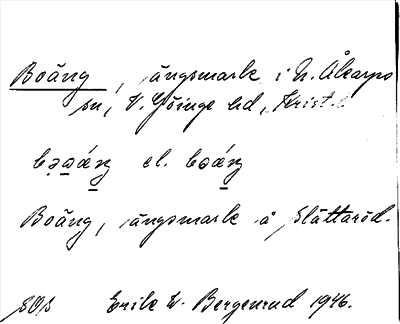 Boäng, ängsmark i N. Åkarps
sn, V. Göinge hd, Krist. l.
el.
Boäng, ängsmark å Slättaröd.
Erik W. Bergenrud 1946.